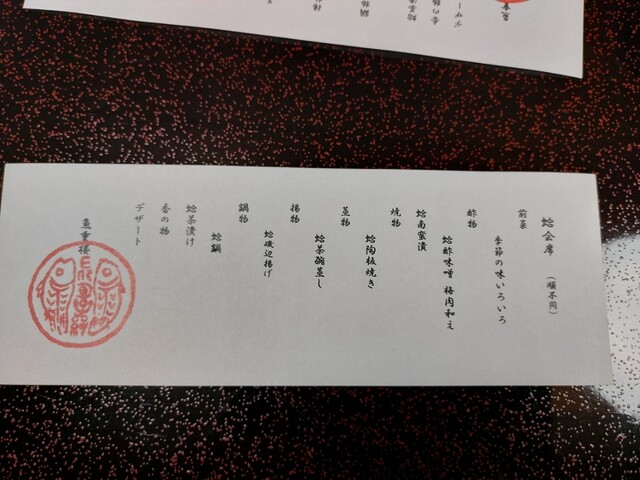 蛤会席 (順不同)
前菜
季節の味いろいろ
酢物
蛤酢味噌 梅肉和え
蛤南蛮漬
焼物
蛤陶板焼き
蒸物
蛤茶碗蒸し
揚物
蛤磯辺揚げ
鍋物
蛤鍋
蛤茶漬け
香の物
デザート
魚重楼